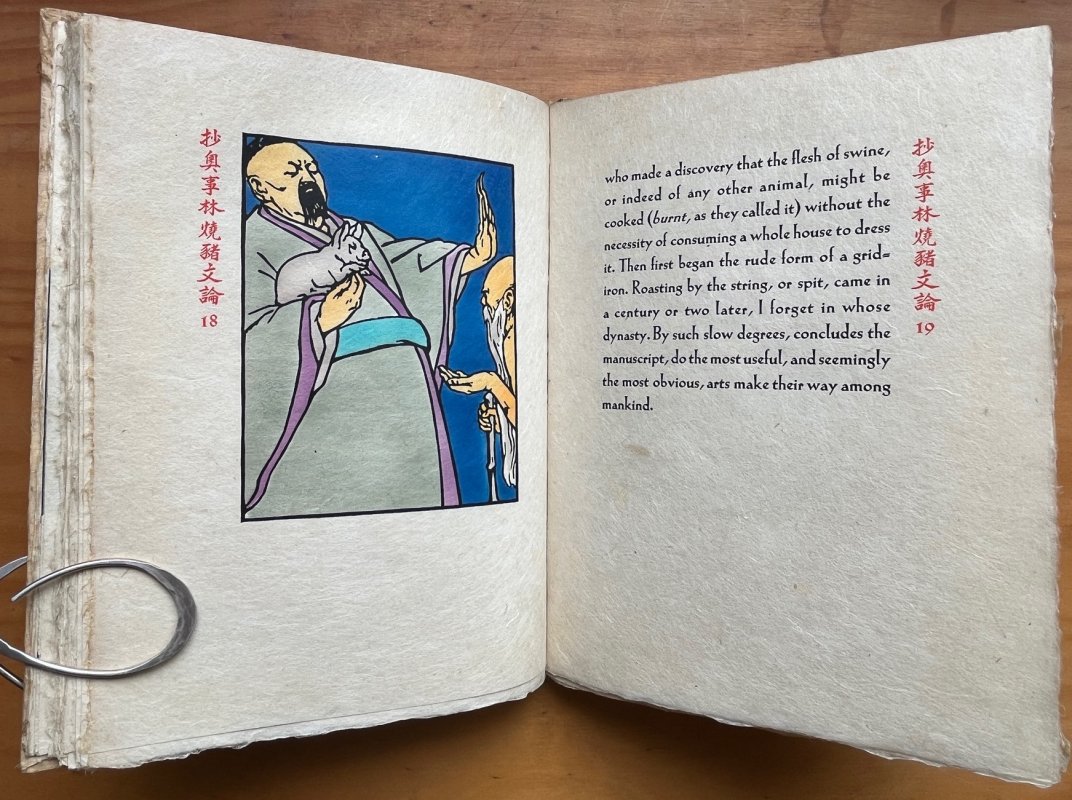 抄奥事林燒豬文論
18
who made a discovery that the flesh of swine,
or indeed of any other animal, might be
cooked (burnt, as they called it) without the
necessity of consuming a whole house to dress
it. Then first began the rude form of a grid=
iron. Roasting by the string, or spit, came in
a century or two later, I forget in whose
dynasty. By such slow degrees, concludes the
manuscript, do the most useful, and seemingly
the most obvious, arts make their way among
mankind.
抄奥事林燒豬文論
19